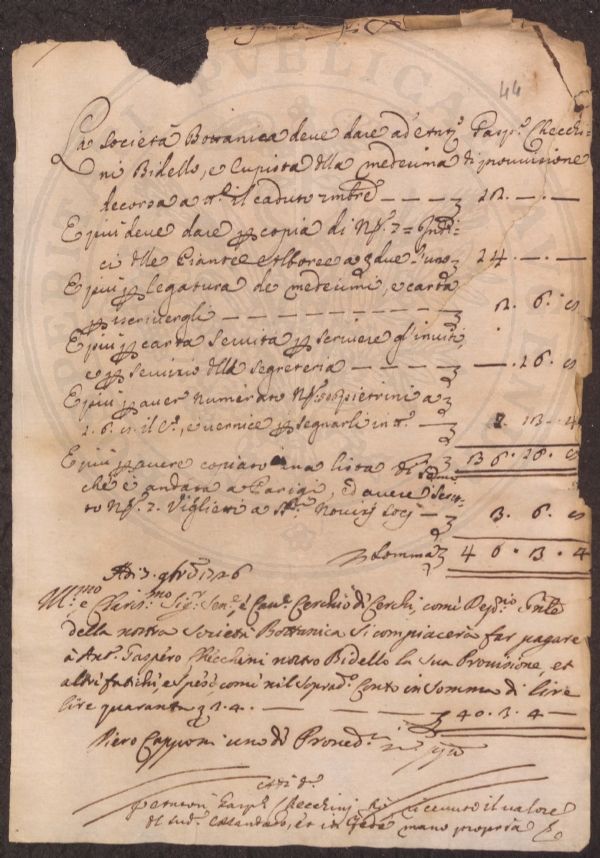 44
La Società Bottanica deve dare ad Antº Gasp.º Checchi-
ni Bidello, e Cupista della medesima di provvisione
decorsa a tt.º il caduto 7mbre — — —
E più deve dare p copia di Nº 2 = Indi-
ci delle Piante e Alboree a due l'uno 24. — . —
E più p legatura de medesimi, e carta
p iscrivergli — — — — — — 2. 6. 8
E più p carta servita p scrivere gl'inviti,
e p servizio della segreteria — — — — — . 26. 8
E più p aver numerato Nº Pietrini a
2. 6. 8. il Cº, e vernice p segnarli in tt.º — 13. 4
E più p avere copiato una lista di semi
che è andata a Parigi, ed avere scrit-
to Nº 2. Viglietti a Novizj Socj — 3. 6. 8
Somma 40. 3. 4
Adì 3. 9bre 1726
M.mo e Claris.mo Sig.r Sen.e, e Cav.e Cerchio de Cerchi, come Dep.rio Gnle
della nostra Società Bottanica si compiacerà far pagare
à Ant.º Gaspero Chicchini nostro Bidello la sua Provisione, et
altri fatichi, e spese come nel soprad.º Conto in somma di lire
lire quaranta 3. 4. — — — 40. 3. 4 —
Piero Capponi uno de Proved.i
Io Antoni Gasp.º Checchini ho ricevuto il valore
del sud.º et in fede mano propria